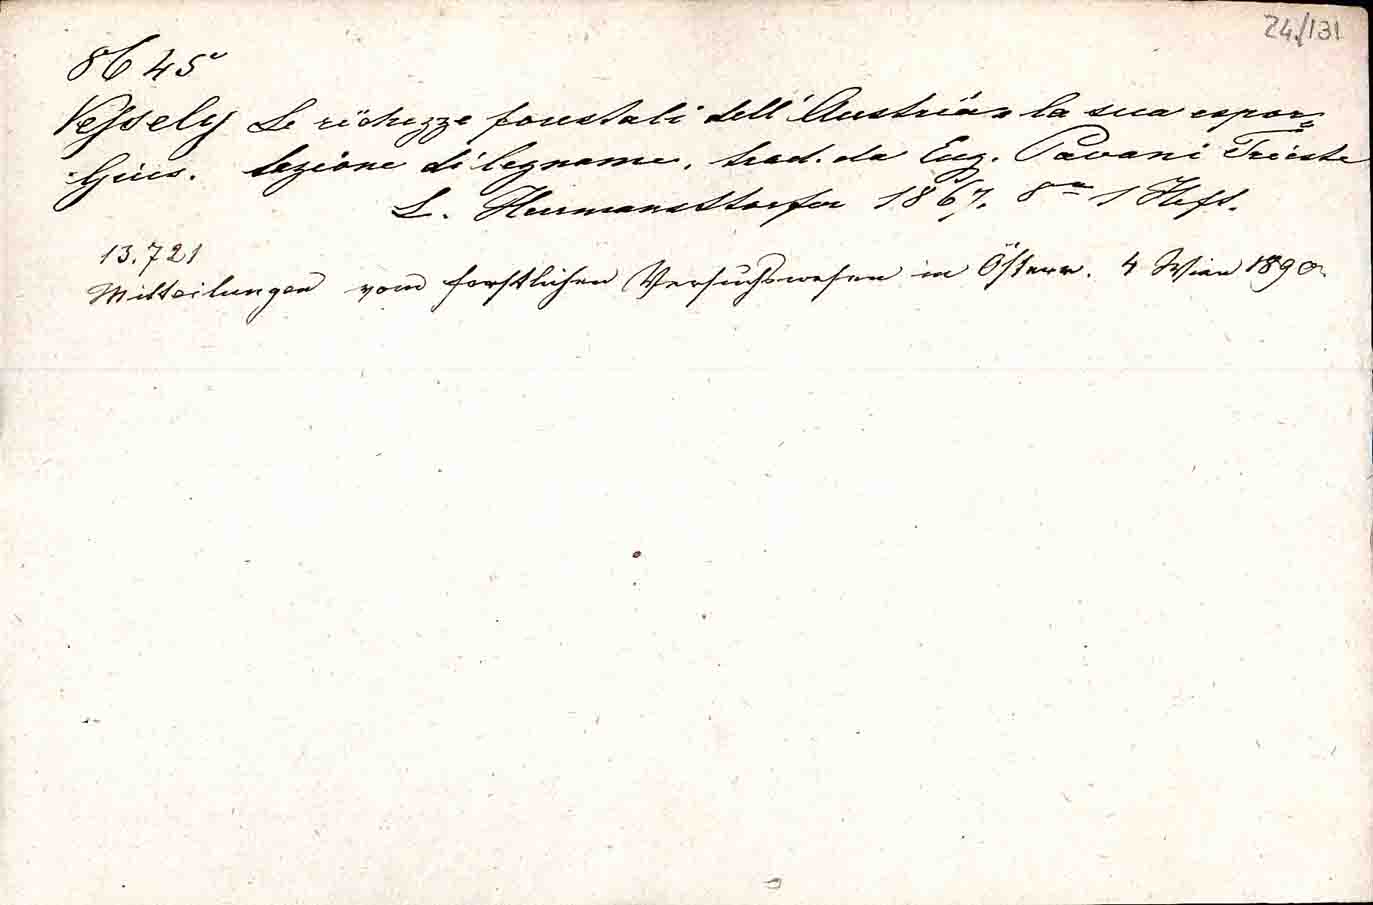 24/131
8645
Vessely Le richezze forestali dell'Austria e la sua espor-
Gius. tazione di legname, trad. da Eug. Pavani Trieste
L. Herrmanstorfer 1867. 8° 1 Heft.
13.721
Mitteilungen vom forstlichen Versuchswesen in Österr. 4 Wien 1890